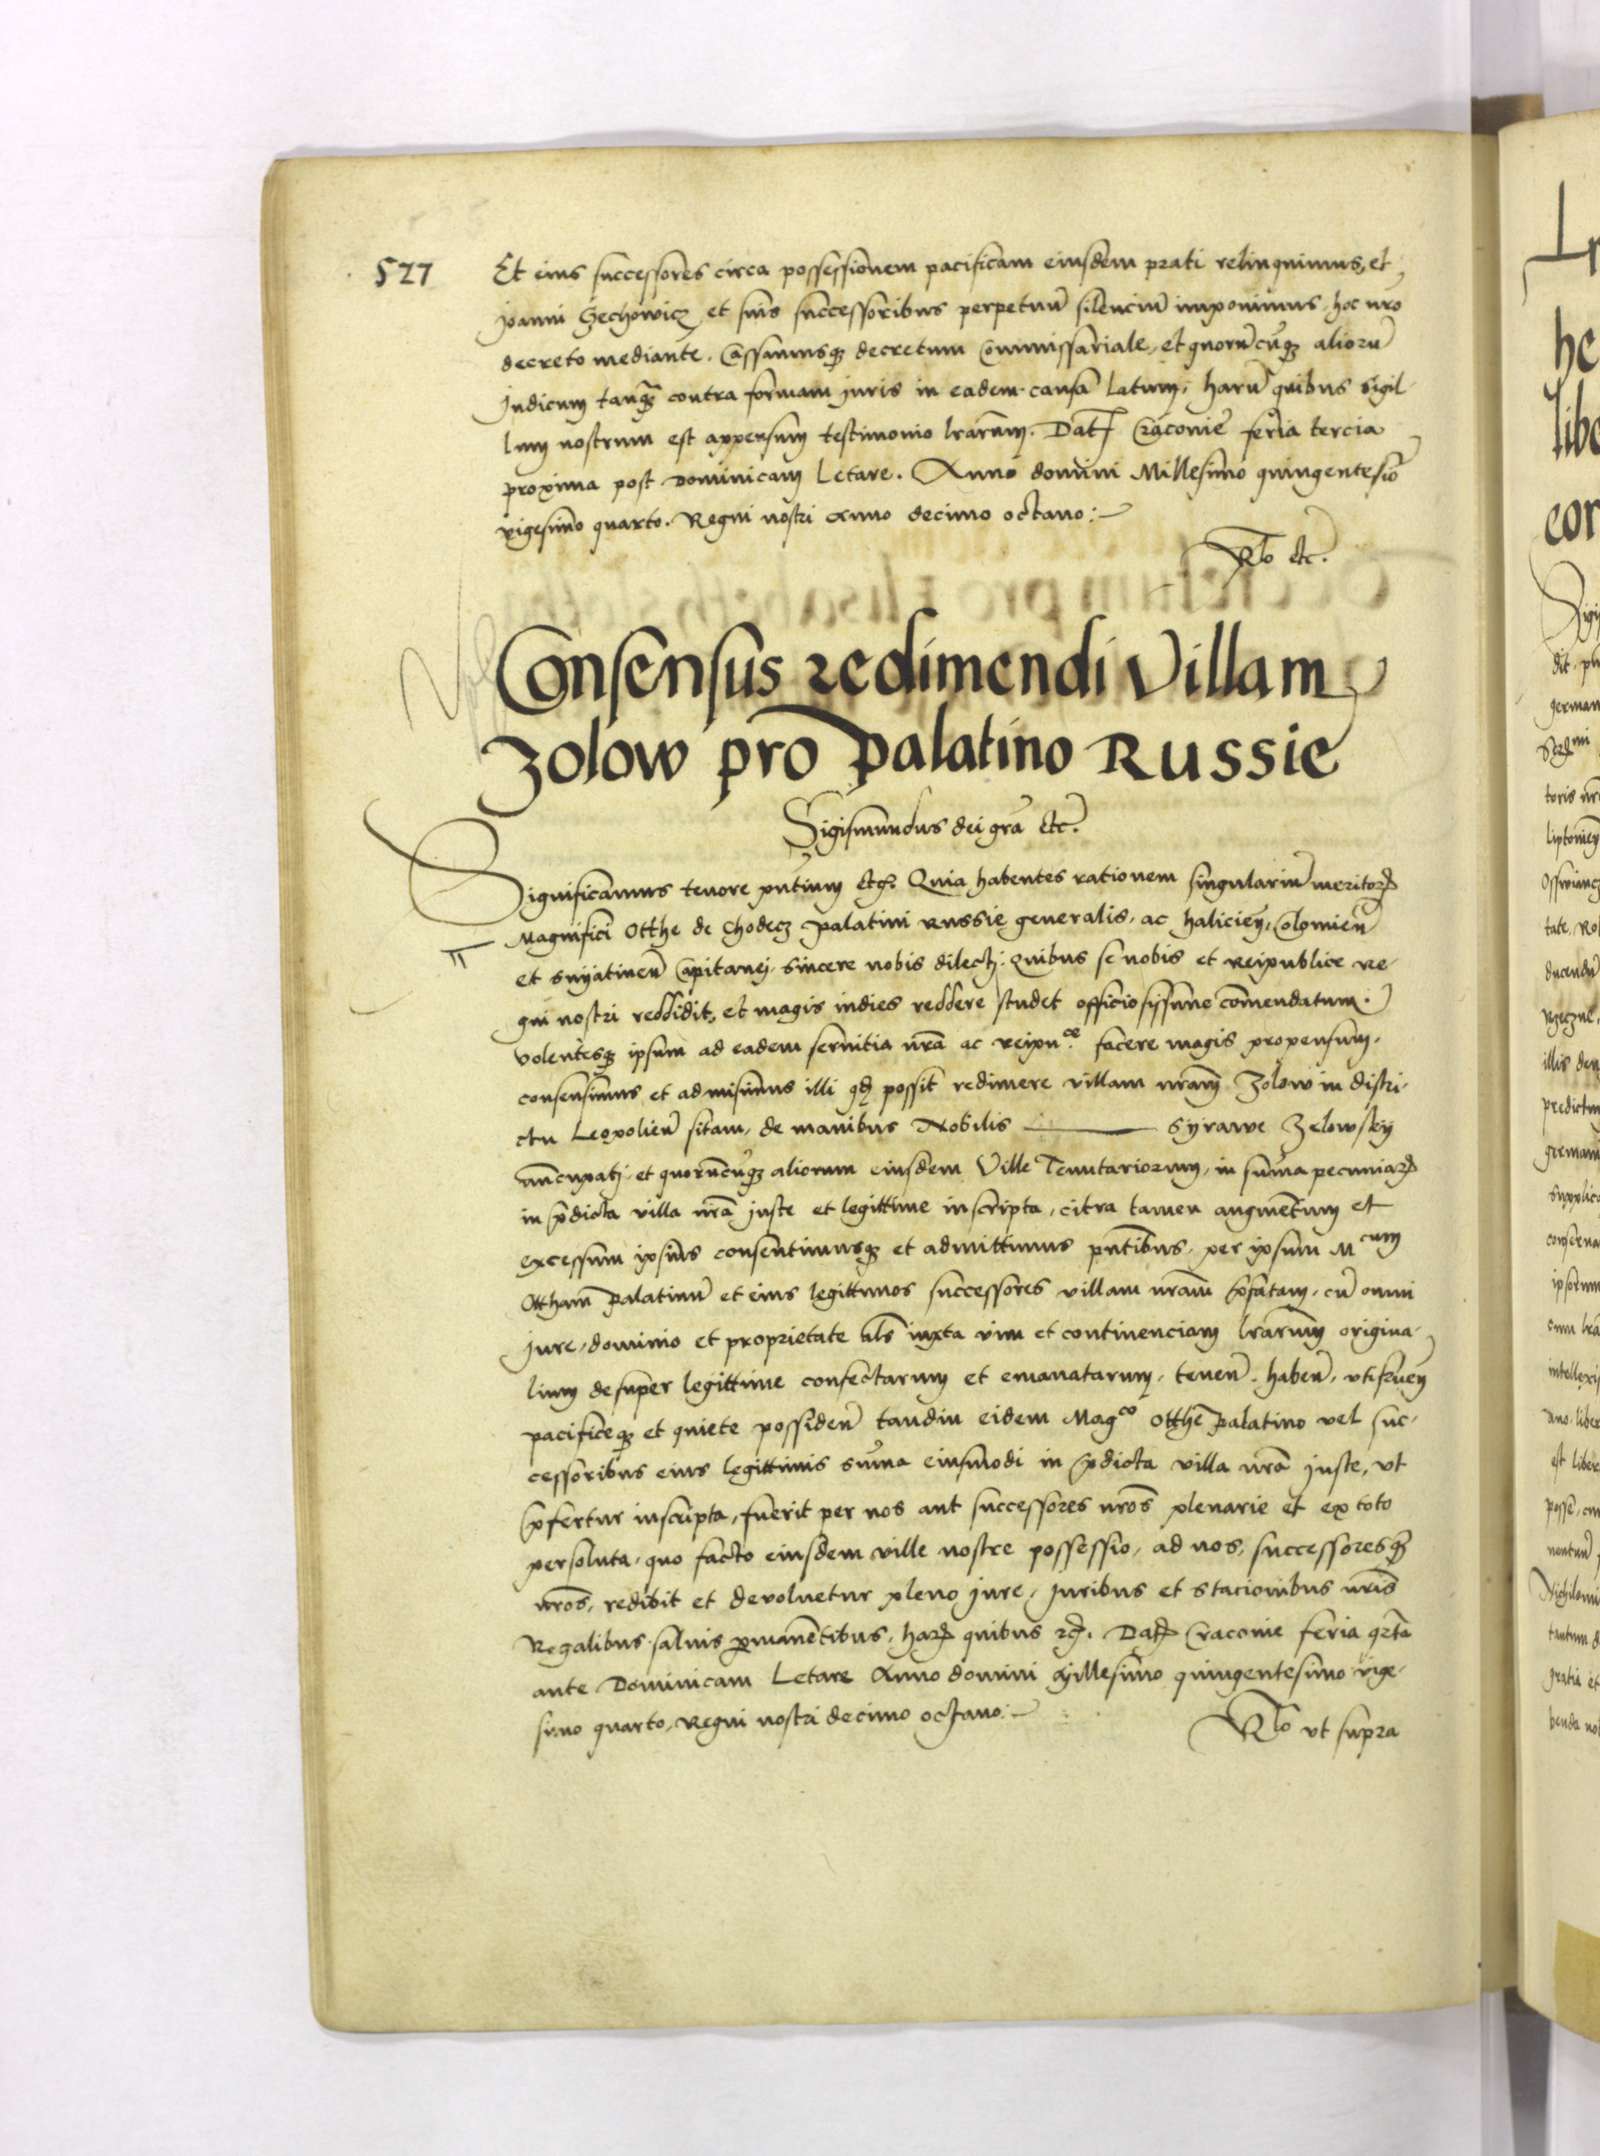 527
Et eius successores circa possessionem pacificam eiusdem prati relinquimus, et
Joanni Sechowicz et suis successoribus perpetuũ silenciũ imponimus, hoc nro
decreto mediante. Cassamusqз decretum Commissariale, et quorũcũqз aliorũ
Judicum tanqз contra formam juris in eadem causa latum, harũ quibus sigil-
lum nostrum est appensum testimonio lrarum. Dat Cracovie feria tercia
proxima post Dominicam Letare. Anno domini Millesimo quingentesĩo
vigesimo quarto. Regni nostri Anno decimo octavo:
Rlo etc.
Consensus redimendi Villam
Zolow pro palatino Russie
Sigismundus dei grã etc.
Significamus tenore pñtium etc. Quia habentes rationem singulariũ meritoꝝ
Magnifici Otthe de Chodecz palatini Russie generalis, ac haliciens̃, Colomien̄
et snyatinen̄ Capitanej, sincere nobis dilectj: Quibus se nobis et reipublice re-
gni nostri reddidit, et magis indies reddere studet officiosissime comendatum.
volentesqз ipsum ad eadem servitia nrã ac reipu.ce facere magis propensum,
consensimus et admisimus illi qđ possit redimere villam nram Zolow in distri-
ctu Leopolien̄ sitam, de manibus Nobilis ——— Syrawe Zelowsky
nuncupatj et quorũcũqз aliorum eiusdem Ville Tenutariorum, in sum̃a pecuniaꝝ
in p̃dicta villa nrã juste et legittime inscripta, citra tamen augmentum et
excessum ipsius consentimusqз et admittimus pñtibus, per ipsum Mcum
Ottham palatinũ et eius legittimos successores villam nram p̃fatam, cũ omni
jure, dominio et proprietate als iuxta vim et continenciam lrarum origina-
lium desuper legittime confectarum et emanatarum, tenen̄, haben̄, utifruen̄
pacificeqз et quiete possiden̄ tandiu eidem Magco Otthe palatino vel suc-
cessoribus eius legittimis sum̃a eiusmodi in p̃dicta villa nrã juste, ut
p̃fertur inscripta, fuerit per nos aut successores nros plenarie et ex toto
persoluta, quo facto eiusdem ville nostre possessio, ad nos, successoresqз
nros, redibit et devolvetur pleno jure, juribus et stacionibus nris
Regalibus salvis ꝑmanẽtibus, haꝝ quibus etc. Datꝝ Cracovie feria qrta
ante Dominicam Letare Anno domini Millesimo quingentesimo vige-
simo quarto, Regni nostri decimo octavo:
Rlo ut supra